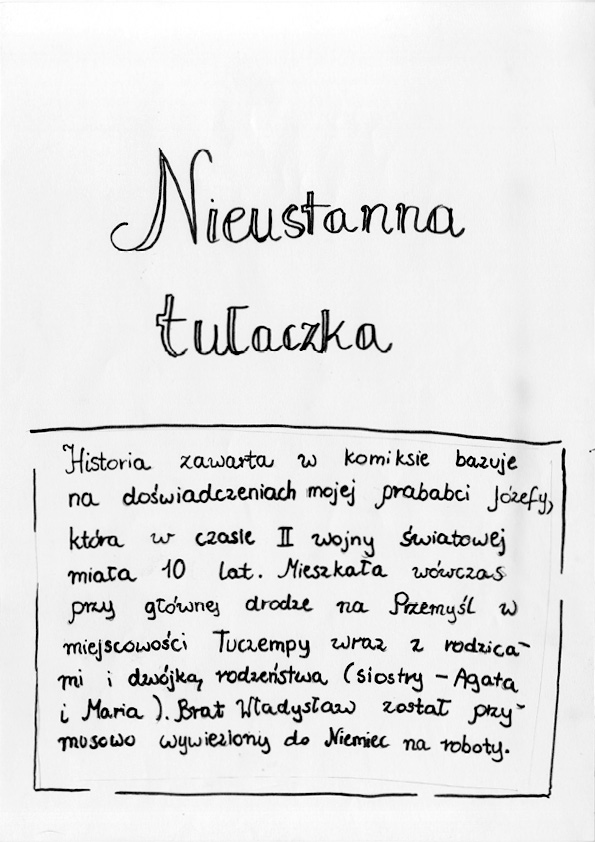 Nieustanna
tułaczka
Historia zawarta w komiksie bazuje
na doświadczeniach mojej prababci Józefy,
która w czasie II wojny światowej
miała 10 lat. Mieszkała wówczas
przy głównej drodze na Przemyśl w
miejscowości Tuczempy wraz z rodzica-
mi i dwójką rodzeństwa (siostry - Agata
i Maria). Brat Władysław został przy-
musowo wywieziony do Niemiec na roboty.